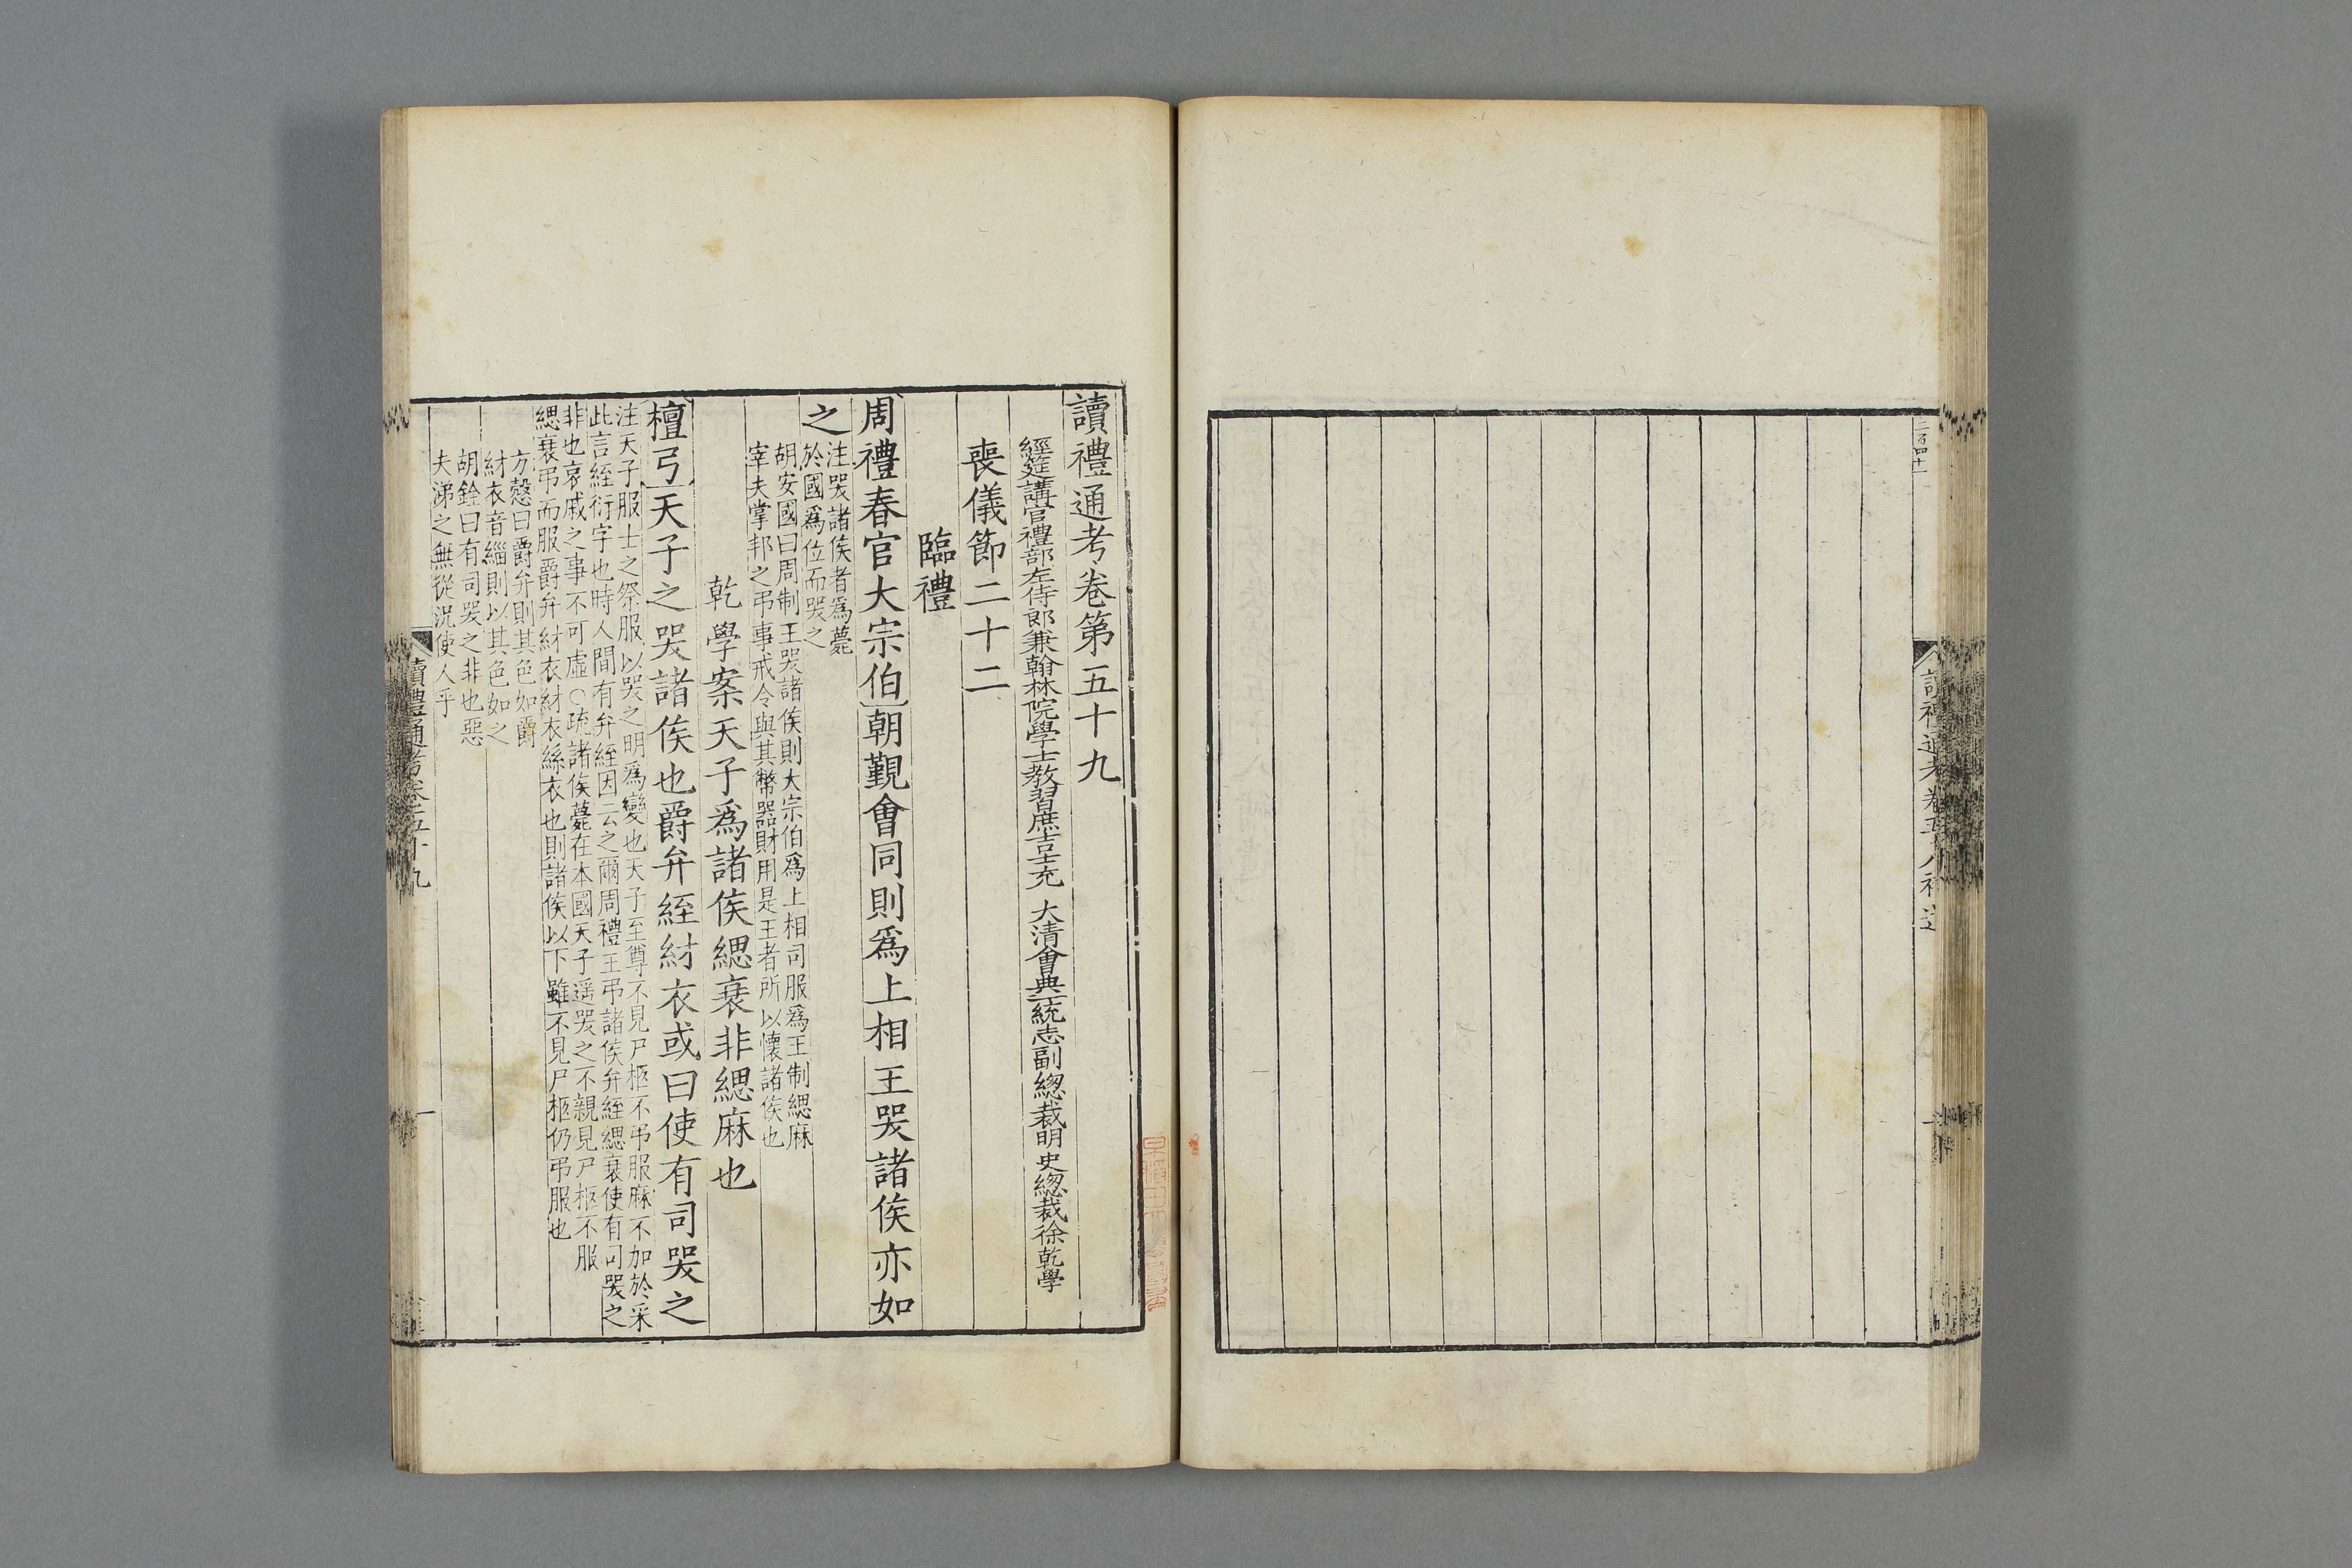 二百四十一
讀禮通考卷五十八補遺
讀禮通考卷第五十九
經筵講官禮部左侍郎兼翰林院學士教習庶吉士充 大清會典一統志副總裁明史總裁徐乾學
喪儀節二十二
臨禮
周禮春官大宗伯朝覲會同則爲上相王哭諸侯亦如
之
注哭諸侯者爲薨
於國爲位而哭之
胡安國曰周制王哭諸侯則大宗伯爲上相司服爲王制緦麻
宰夫掌邦之弔事戒令與其幣器財用是王者所以懷諸侯也
乾學案天子爲諸侯緦衰非緦麻也
檀弓天子之哭諸侯也爵弁絰紂衣或曰使有司哭之
注天子服士之祭服以哭之明爲變也天子至尊不見尸柩不弔服麻不加於采
此言絰衍字也時人間有弁絰因云之爾周禮王弔諸侯弁絰緦衰使有司哭之
非也哀戚之事不可虛○疏諸侯薨在本國天子遥哭之不親見尸柩不服
緦衰弔而服爵弁紂衣紂衣絲衣也則諸侯以下雖不見尸柩仍弔服也
方慤曰爵弁則其色如爵
紂衣音緇則以其色如之
胡銓曰有司哭之非也惡
夫涕之無從況使人乎
讀禮通考卷五十九
一